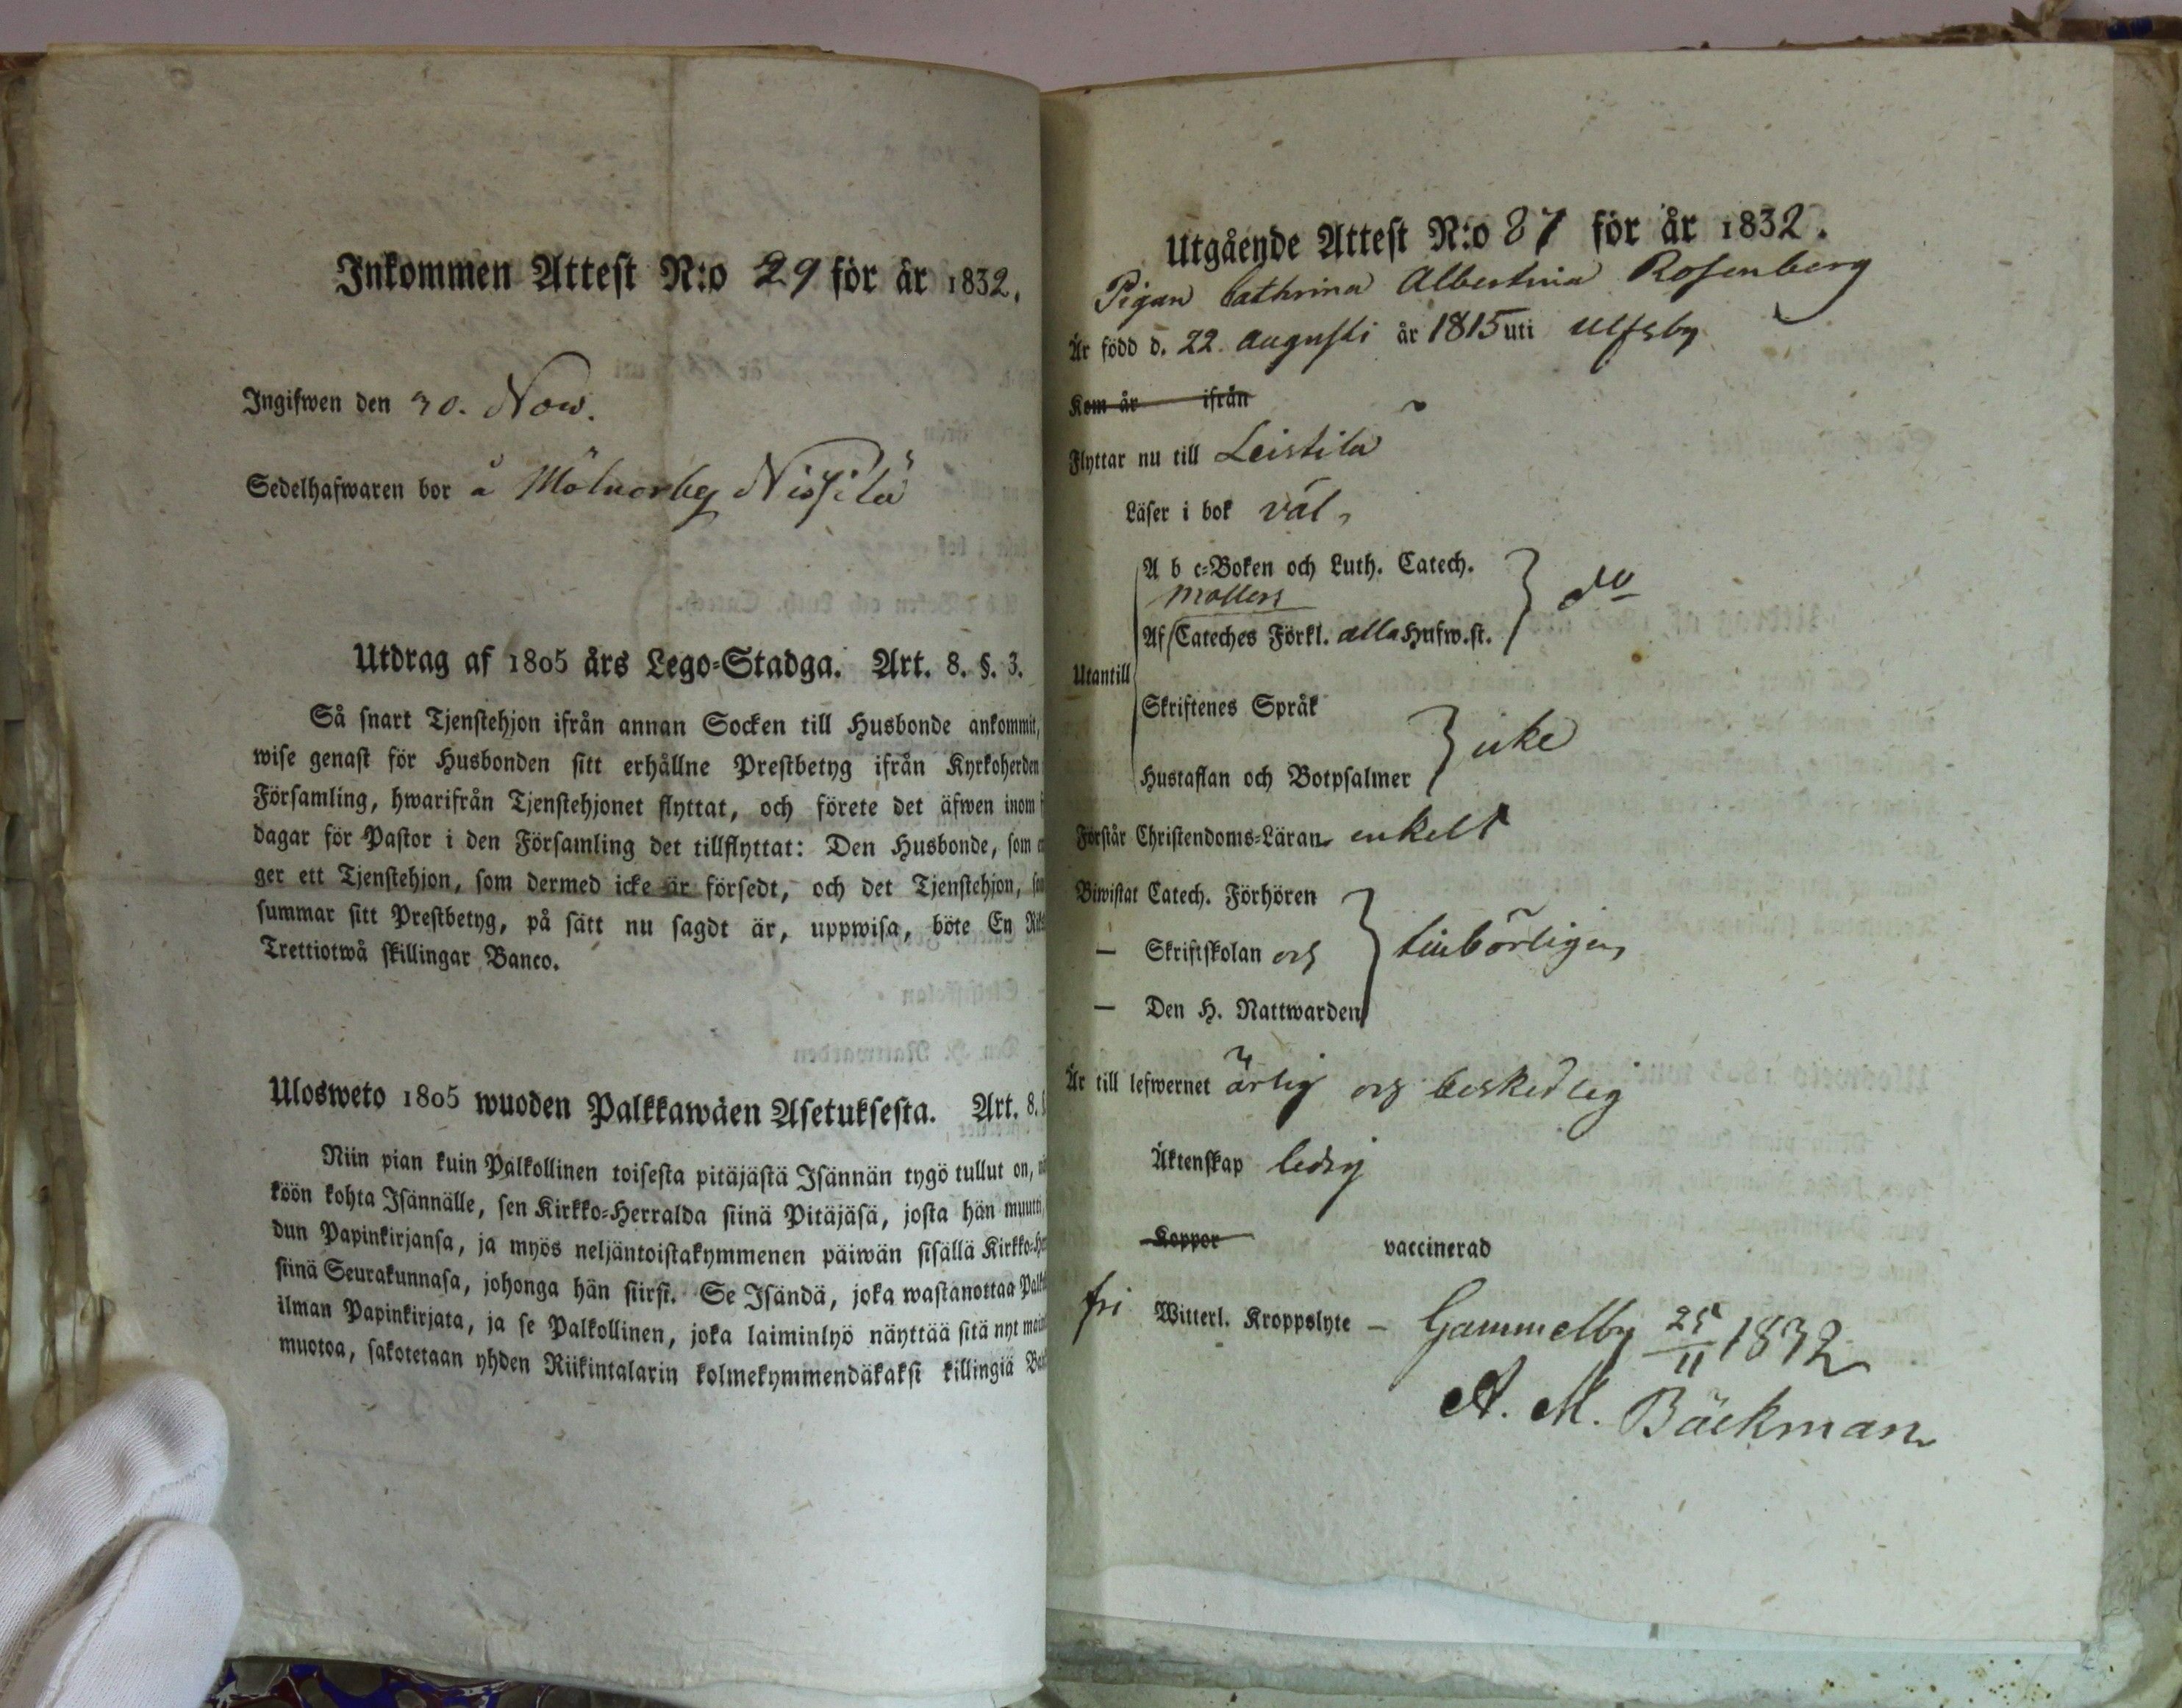 Inkommen Attest N:o 29 för år 1832.
Ingifwen den 30. Nov.
Sedelhafwaren bor å Mölnorby Nissilä
Utdrag af 1805 års Lego-Stadga. Art. 8. §. 3.
Så snart Tjenstehjon ifrån annan Socken till Husbonde ankommit,
wise genast för Husbonden sitt erhållne Prestbetyg ifrån Kyrkoherden
Församling, hwarifrån Tjenstehjonet flyttat, och förete det äfwen inom
dagar för Pastor i den Församling det tillflyttat: Den Husbonde, som
ger ett Tjenstehjon, som dermed icke är försedt, och det Tjenstehjon,
summar sitt Prestbetyg, på sätt nu sagdt är, uppwisa, böte En
Trettiotwå skillingar Banco.
Ulosweto 1805 wuoden Palkkawäen Asetuksesta. Art. 8.
Niin pian kuin Palkollinen toisesta pitäjästä Isännän tygö tullut on,
köön kohta Isännälle, sen Kirkko-Herralda siinä Pitäjäsä, josta hän muutti,
dun Papinkirjansa, ja myös neljäntoistakymmenen päiwän sisällä Kirkko-
siinä Seurakunnasa, johonga hän siirsi. Se Isändä, joka wastanottaa
ilman Papinkirjata, ja se Palkollinen, joka laiminlyö näyttää sitä nyt
muotoa, sakotetaan yhden Riikintalarin kolmekymmendäkaksi killingiä
Utgående Attest N:o 87 för år 1832.
Pigan Cathrina Albertina Rosenberg
Är född d. 22. Augusti år 1815 uti Ulfsby
Kom år ifrån
Flyttar nu till Leistila
Läser i bok väl,
A b c-Boken och Luth. Catech. do
Möllers
Af Cateches Förkl. alla Hufw.st.
Utantill
Skriftenes Språk
icke
Hustaflan och Botpsalmer
Förstår Christendoms-Läran enkelt
Biwistat Catech. Förhören
— Skriftskolan och tillbörligen
— Den H. Nattwarden
Är till lefwernet ärlig och beskedlig
Äktenskap ledig
Koppor vaccinerad
fri Witterl. Kroppslyte – Gammelby 25/11 1832
A. M. Bäckman